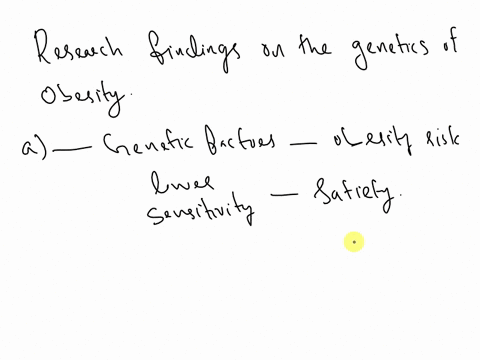 Research findings on the genetics of
Obesity.
a) — Genetic factors — obesity risk
lower
sensitivity — Satiety.